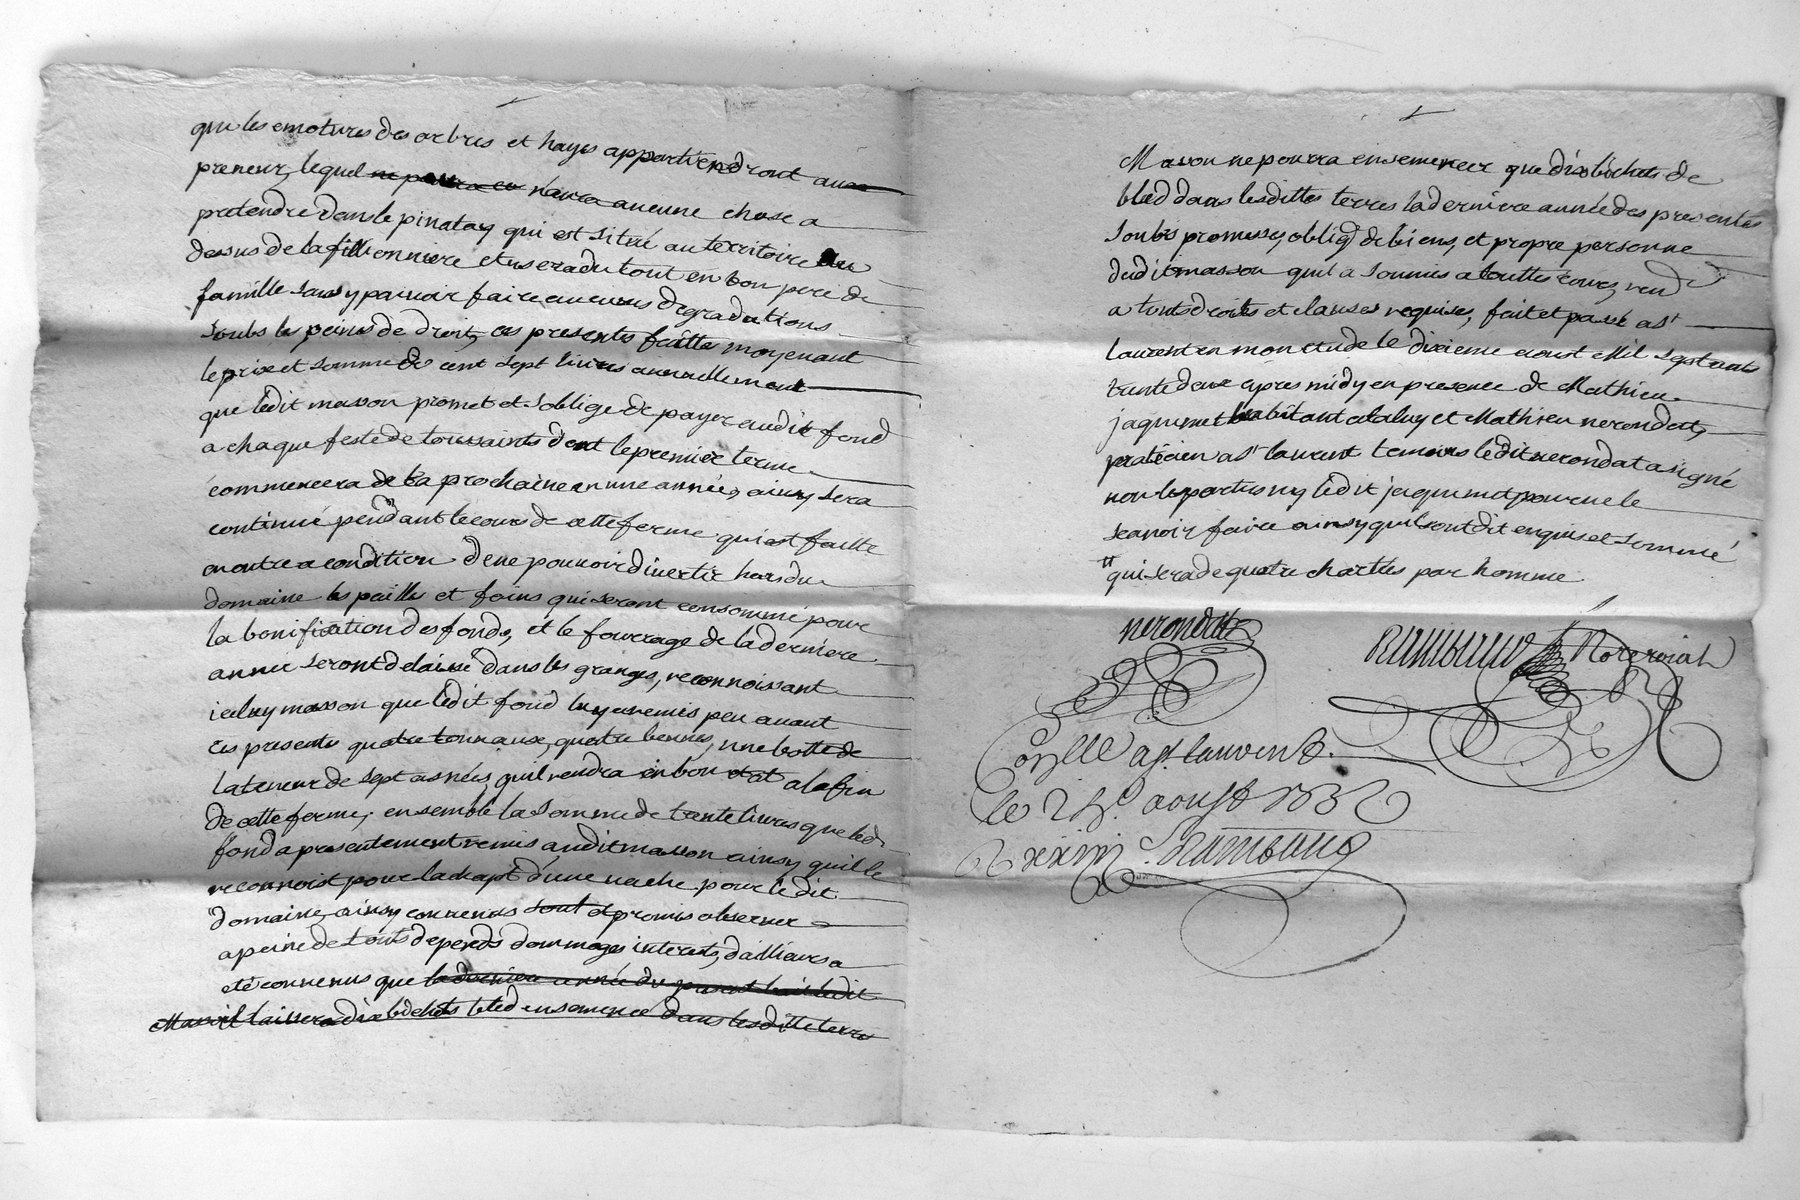 que les emotures des arbres et hayes appartiendront au
preneur, lequel ne pourra en n'aura aucune chose a
pretendre dans le pinatay qui est situé au territoire du
dessus de la fillionniere et usera du tout en bon pere de
famille sans y pouvoir faire aucunes degradations
soubs les peines de droit, ces presentes faittes moyenant
le prix et somme de cent sept livres annuellement
que ledit masson promet et s'oblige de payer audit fond
a chaque feste de toussaints dont le premier terme
commencera de la prochaine en une année, ainsy sera
continué pendant le cours de cette ferme qui est faitte
en outre a condition de ne pouvoir divertir hors du
domaine les pailles et foins qui seront consommé pour
la bonification des fonds, et le fourrage de la derniere
année seront delaissé dans les granges, reconnoissant
icelluy masson que ledit fond luy a remis peu avant
ces presentes quatre tonnaux, quatre bennes, une botte de
la teneur de sept asnées, quil rendra en bon etat a la fin
de cette ferme, ensemble la somme de trente livres que led
fond a presentement remis audit masson ainsy quil le
reconnoist pour lachapt d'une vache pour ledit
domaine, ainsy convenus sont et promis observer
a peine de touts depends dommages interets, dallieurs a
eté convenus que la derniere année du present bail ledit
Masson laissera dix bichets bled ensemencé dans lesditte terres
Masson ne pourra ensemencer que dix bichets de
bled dans lesdittes terres la derniere année des presentes
soubs promesses, oblig de biens, et propre personne
dudit masson quil a soumis a touttes cours, rend
a touts droits et clauses requises, fait et passé a st
laurent en mon etude le dixieme aoust Mil sept cents
trente deux apres midy en presence de Mathieu
jaqumet habitant a taluy et Mathieu nerondat,
praticien a st laurent temoins ledit nerondat a signé
non les parties ny ledit jaquimet pour ne le
scavoir faire ainsy quil sont dit enquis et sommé
qui sera de quatre charttes par homme
nerondat
Rambaud Notereoial
Conlle a st laurent
le 24e aoust 1732
R xxiiij s. Rambaud